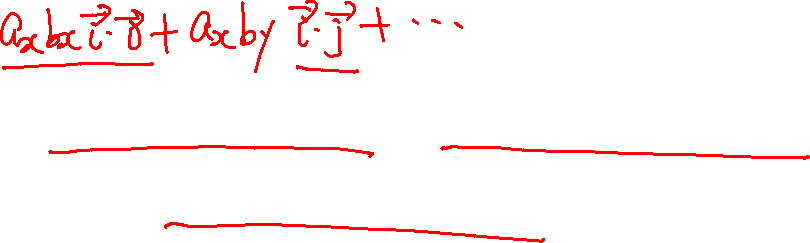 aₓbₓ i⃗·i⃗ + aₓb_y i⃗·j⃗ + ⋯